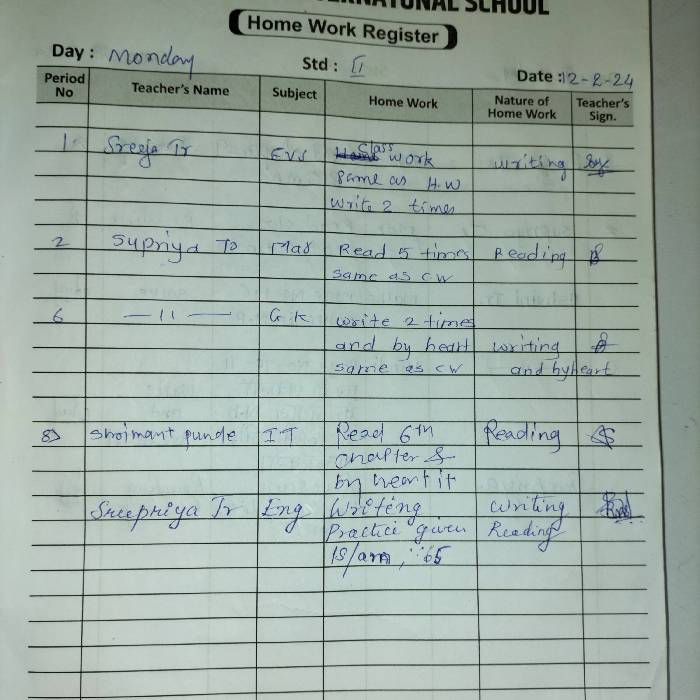 SCHOOL
Home Work Register
Day : Monday Std : II Date : 12-2-24
Period No Teacher's Name Subject Home Work Nature of Home Work Teacher's Sign.
1 Sreeja Tr EVS Class work writing
same as H.W
write 2 times
2 Supriya Tr Mar Read 5 times Reading
same as cw
6 — 11 — G.K write 2 times
and by heart writing
same as cw and byheart
8) IT Read 6th Reading
chapter &
by heart it
Sreepriya Tr Eng Writing Writing
Practice given Reading
65